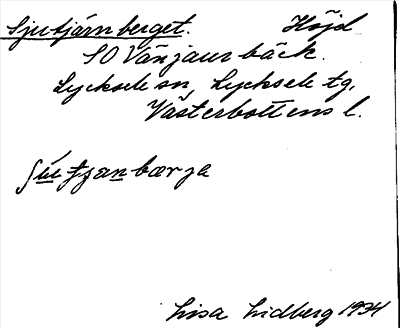 Sjutjärnberget. Höjd
SO Vänjaurbäck.
Lycksele sn, Lycksele tg,
Västerbottens l.
ʃɯ́tjanbærja
Lisa Lidberg 1934